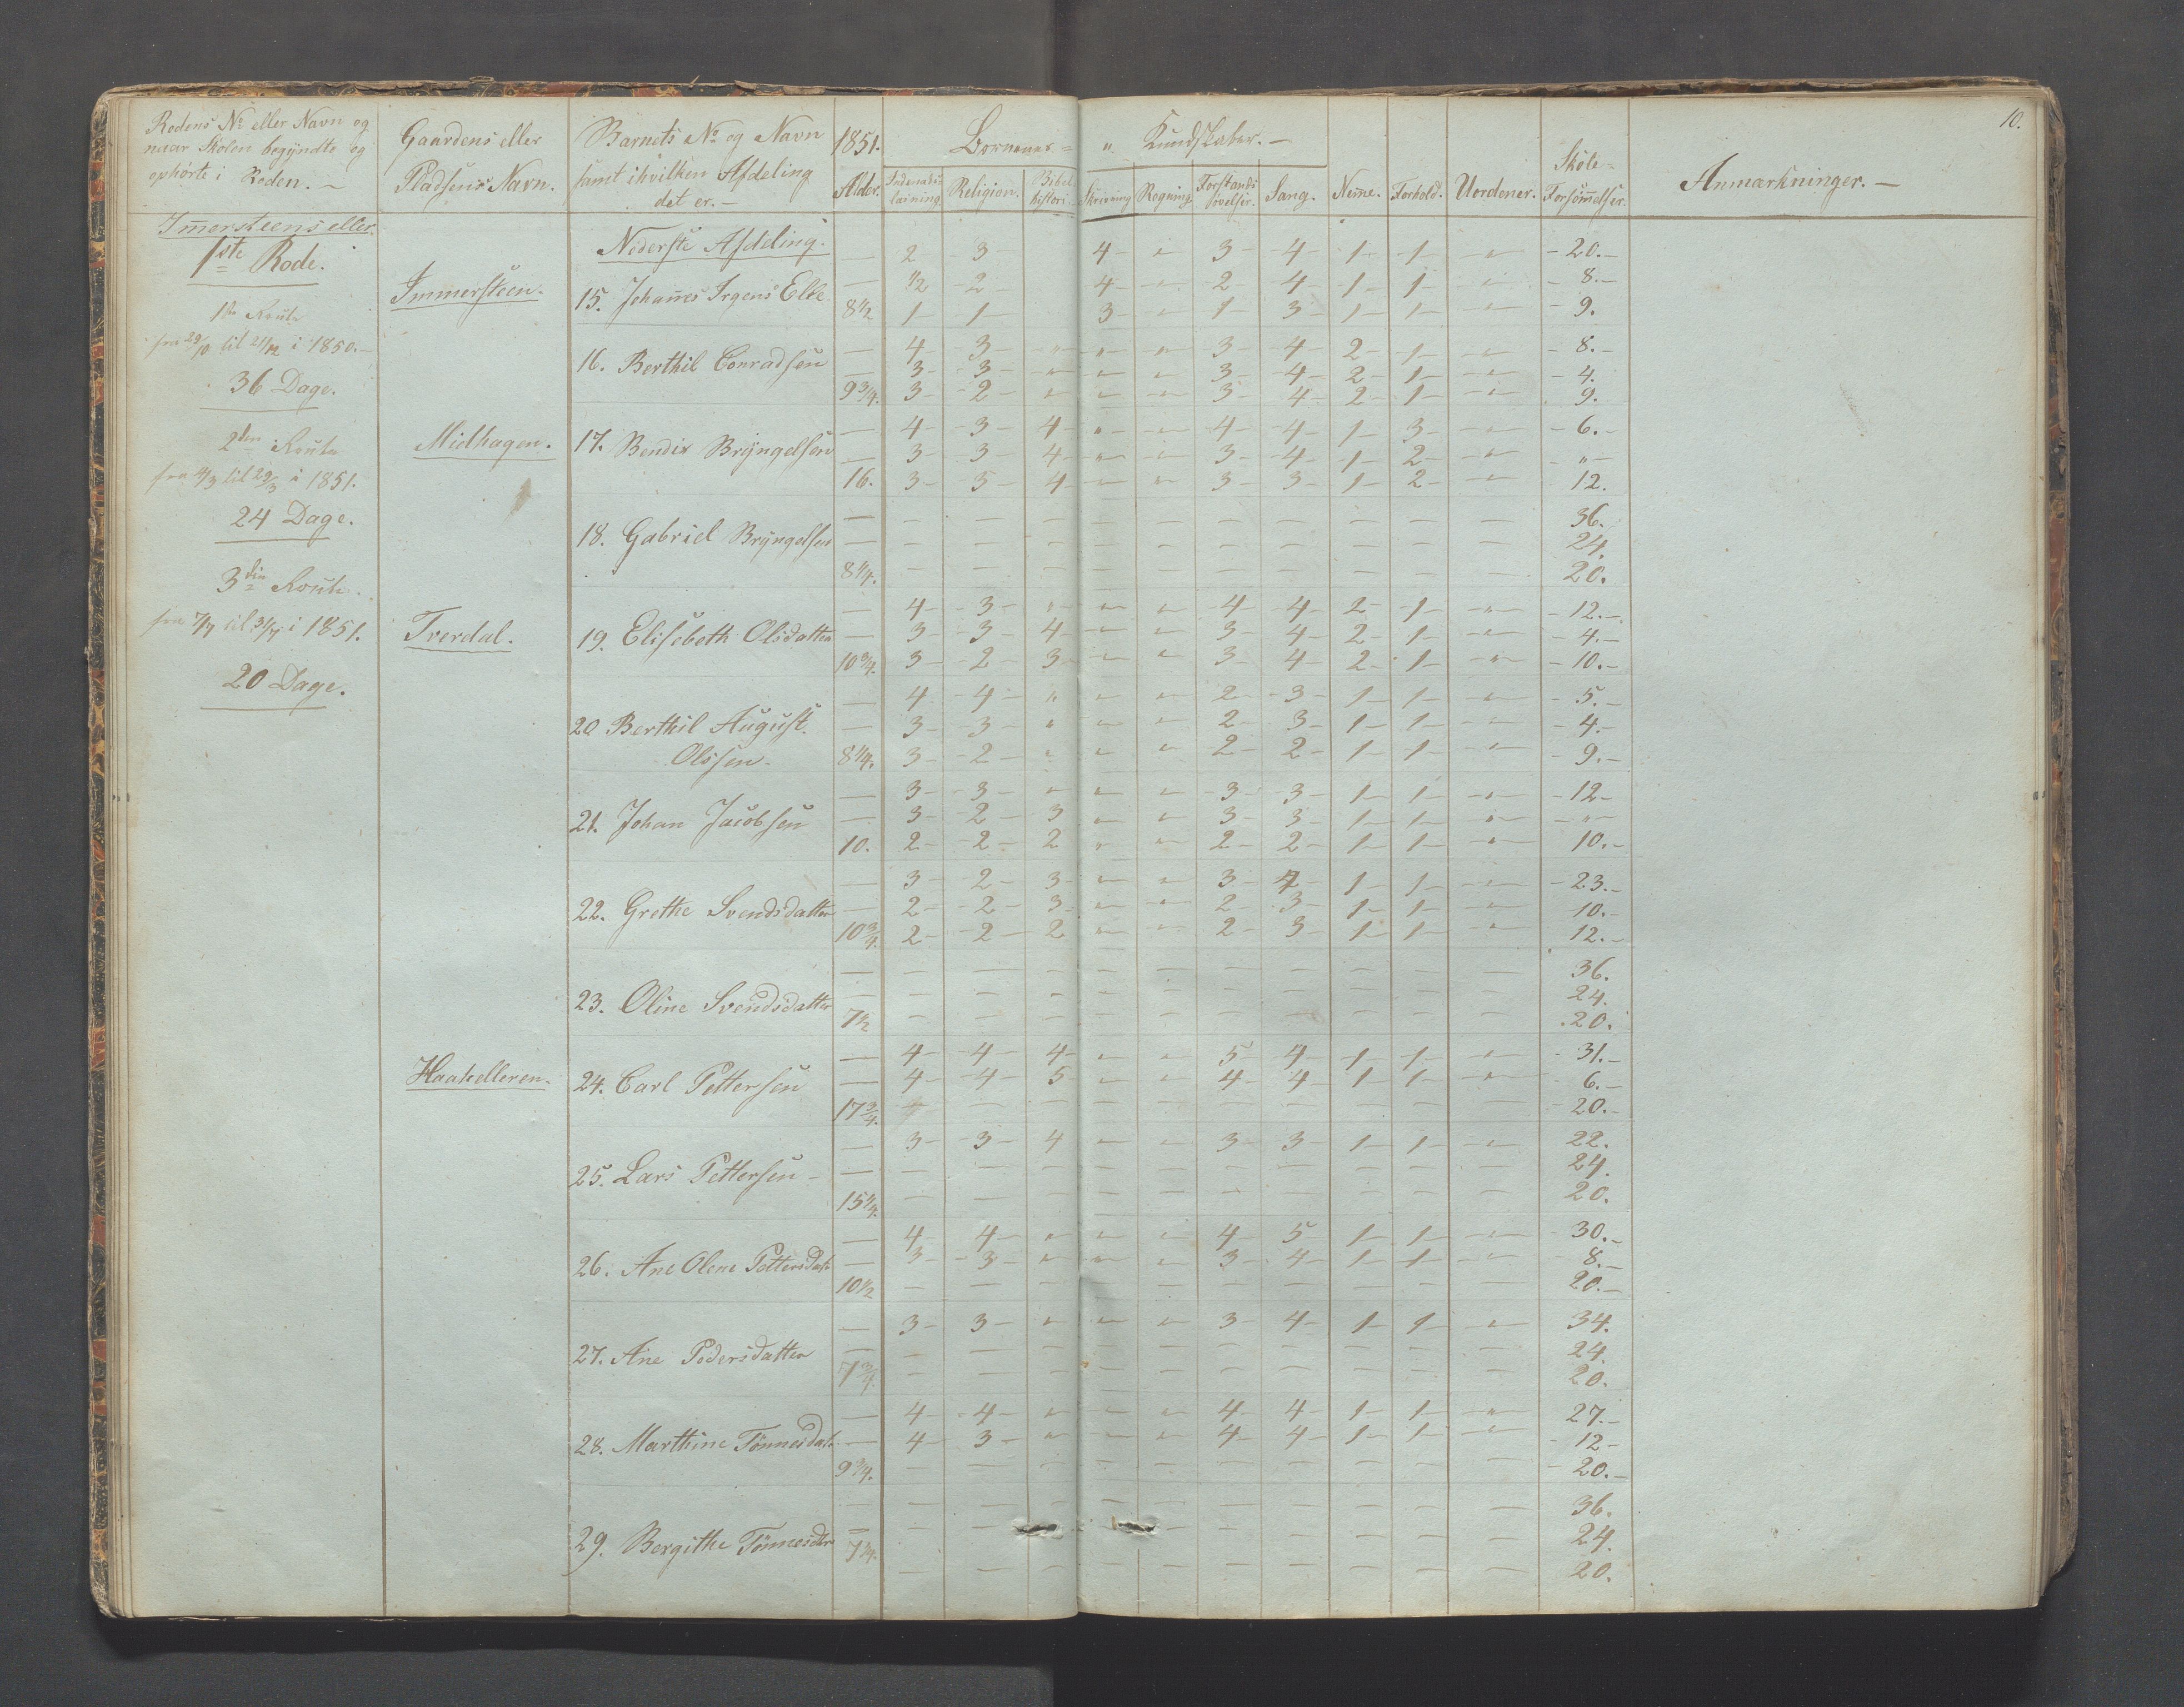 10.
Rodens No eller Navn og
naar Skolen begyndte og
ophørte i Roden. —
Gaardens eller
Pladsens Navn.
Barnets No og Navn
samt i hvilken Afdeling
det er. —
1851.
Alder.
Børnenes = " Kundskaber. —
Religion.
Bibel
histori.
Skrivning
Regning
Forstands
øvelser.
Sang.
Nemme.
Forhold.
Uordener.
Skole=
Forsømmelser.
Anmærkninger. —
Immersteens eller
1ste Rode.
1ste Route
fra 29/10 til 21/12 i 1850. —
36 Dage.
2den Route
fra 4/3 til 29/3 i 1851.
24 Dage.
3die Route.
fra 7/7 til 31/7 i 1851.
20 Dage.
Nederste Afdeling.
— 2 3 4 " 3 4 1 1 " 20.
Immersteen.
15. Johannes Elle
— 1/2 2 4 " 2 4 1 1 " 8.
8 1/2 1 1 3 " 1 3 1 1 " 9.
16. Berthil Conradsen
— 4 3 " " " 3 4 2 1 " 8.
— 3 3 " " " 3 4 2 1 " 4.
9 3/4. 3 2 " " " 3 4 2 1 " 9.
Midhagen.
17. Bendix Bryngelsen
— 4 3 4 " " 4 4 1 3 " 6.
— 3 3 4 " " 3 4 1 2 " "
16. 3 3 4 " " 3 3 1 2 " 12.
18. Gabriel Bryngelsen
— — — — — — — — — — — 36.
— — — — — — — — — — — 24.
8 1/4. — — — — — — — — — — 20.
Tverdal.
19. Elisebeth Olsdatter
— 4 3 " " " 4 4 2 1 " 12.
— 3 3 4 " " 3 4 2 1 " 4.
10 3/4. 3 2 3 " " 3 4 2 1 " 10.
20 Berthil August
Olssen.
— 4 4 " " " 2 3 1 1 " 5.
— 3 3 " " " 2 3 1 1 " 4.
8 1/4. 3 2 " " " 2 2 1 1 " 9.
21. Johan Jacobsen
— 3 3 " " " 3 3 1 1 " 12
— 3 2 3 " " 3 3 1 1 " "
10. 2 2 2 " " 2 2 1 1 " 10.
22. Grethe Svendsdatter
— 3 2 3 " " 3 4 1 1 " 23.
— 2 2 3 " " 2 3 1 1 " 10.
10 3/4. 2 2 2 " " 2 3 1 1 " 12.
23. Oline Svendsdatter
— — — — — — — — — — — 36.
— — — — — — — — — — — 24.
7 1/2 — — — — — — — — — — 20.
Haakelleren.
24. Carl Pettersen
— 4 4 4 " " 5 4 1 1 " 31.
— 4 4 5 " " 4 4 1 1 " 6.
17 3/4. — — — — — — — — — — 20.
25. Lars Pettersen
— 3 3 4 " " 3 3 1 1 " 22.
— — — — — — — — — — — 24.
15 1/4. — — — — — — — — — — 20.
26. Ane Olene Pettersdatr
— 4 4 " " " 4 5 1 1 " 30.
— 3 3 " " " 3 4 1 1 " 8.
10 1/2 — — — — — — — — — — 20.
27. Ane Pedersdatter
— 3 3 " " " 3 4 1 1 " 34.
— — — — — — — — — — — 24.
7 3/4. — — — — — — — — — — 20.
28. Marthine Tønnesdatr
— 4 4 " " " 4 4 1 1 " 27.
— 4 3 " " " 4 4 1 1 " 12
9 3/4. — — — — — — — — — — 20.
29. Bergithe Tønnesdtr
— — — — — — — — — — — 36.
— — — — — — — — — — — 24.
— — — — — — — — — — 20.